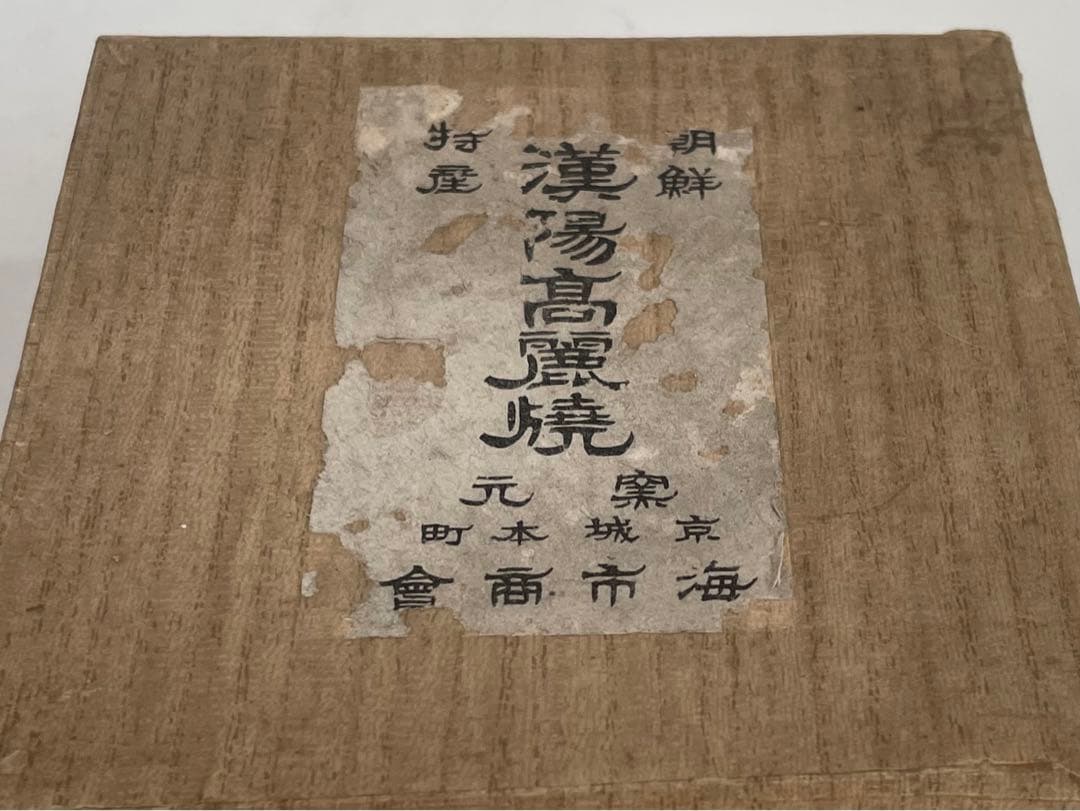 朝鮮
特産
漢陽高麗燒
窯元
京城本町
海市商會